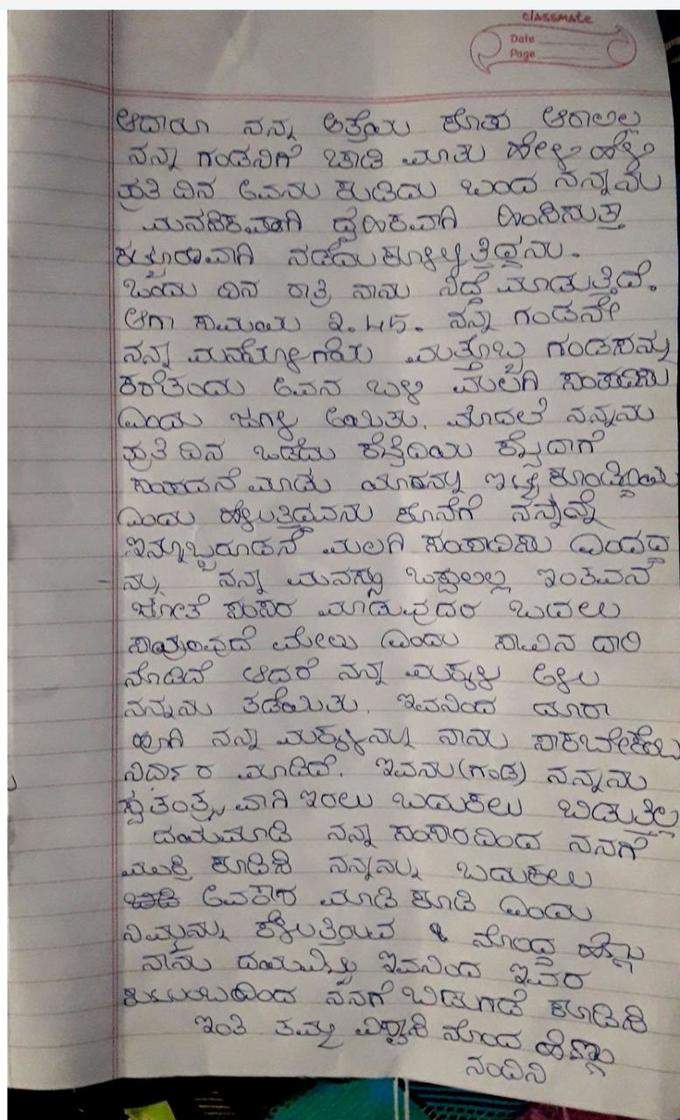 classmate
Date
Page
ಆದಾರೂ ನನ್ನ ಅತ್ತೆಯ ಕೋಪ ಆರಾಲಿಲ್ಲ
ನನ್ನಾ ಗಂಡನಿಗೆ ಚಾಡಿ ಮಾತು ಹೇಳಿ ಹೇಳಿ
ಪ್ರತಿ ದಿನ ಅವನು ಕುಡಿದು ಬಂದ ನನ್ನಾನು
ಮನಸಿಕವಾಗಿ ದೈಹಿಕವಾಗಿ ಹಿಂಸಿಸುತ್ತಾ
ಕ್ರೂರವಾಗಿ ನಡೆದುಕೂಳ್ಳುತ್ತಿದ್ದನು.
ಒಂದು ದಿನ ರಾತ್ರಿ ನಾನು ನಿದ್ದೆ ಮಾಡುತ್ತಿದೆ.
ಆಗಾ ಸಾಮಯ 2.45. ನನ್ನಾ ಗಂಡನೇ
ನನ್ನಾ ಮನೆಯೊಳಗಡೆಯ ಮತ್ತೊಬ್ಬ ಗಂಡಸನ್ನು
ಕರೆತಂದು ಅವನ ಬಳಿ ಮಲಗಿ ಸಂಪಾದಿಸು
ಎಂದು ಜಗಳ ಆಯಿತು. ಮೊದಲೆ ನನ್ನನು
ಪ್ರತಿ ದಿನ ಒಡೆದು ಕೆತ್ತೆದಿಯ ಕೈದಾಗೆ
ಸಂಪಾದನೆ ಮಾಡು ಯಾರನ್ನು ಇಟ್ಟ ಕೂಂಡ್ಡಿದಿಯ
ಎಂದು ಹೇಳುತ್ತಿದ್ದವನು ಕೂನೆಗೆ ನನ್ನಾನ್ನೆ
ಇನ್ನೂಬ್ಬರೂಡನೆ ಮಲಗಿ ಸಂಪಾದಿಸು ಎಂದದ್ದ
ನ್ನು ನನ್ನಾ ಮನಸ್ಸು ಒಪ್ಪಲಿಲ್ಲ ಇಂತವನ
ಜೋತೆ ಸಂಸಾರ ಮಾಡುವುದರ ಬದಲು
ಸಾಯುವುದೆ ಮೇಲು ಎಂದು ಸಾವಿನ ದಾರಿ
ನೋಡಿದೆ ಆದರೆ ನನ್ನಾ ಮಕ್ಕಳು ಅಳಲು
ನನ್ನನು ತಡೆಯಿತು. ಇವನಿಂದ ದೂರಾ
ಹೋಗಿ ನನ್ನಾ ಮಕ್ಕಳನ್ನು ನಾನು ಸಾಕಬೇಕೆಂಬ
ನಿರ್ದಾರ ಮಾಡಿದೆ. ಇವನು(ಗಂಡ) ನನ್ನನು
ಸ್ವತಂತ್ರ್ಯವಾಗಿ ಇರಲು ಬದುಕಲು ಬಿಡುತ್ತಿಲ್ಲ
ದಯಮಾಡಿ ನನ್ನಾ ಸಂಸಾರದಿಂದ ನನಗೆ
ಮುಕ್ತಿ ಕೂಡಿಸಿ ನನ್ನನ್ನು ಬದುಕಲು
ಅವಕಾಶ ಮಾಡಿ ಕೂಡಿ ಎಂದು
ನಿಮ್ಮನ್ನು ಕೇಳುತ್ತಿರುವ ನೋಂದ ಹೆಣ್ಣು
ನಾನು ದಯವಿಟ್ಟು ಇವನಿಂದ ಇವರ
ಕುಟುಂಬದಿಂದ ನನಗೆ ಬಿಡುಗಡೆ ಕೂಡಿಸಿ
ಇಂತಿ ತಮ್ಮ ವಿಶ್ವಾಸಿ ನೋಂದ ಹೆಣ್ಣು
ನಂದಿನಿ